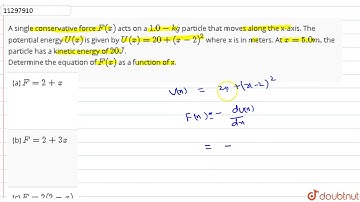 11297910
A single conservative force F(x) acts on a 1.0 − kg particle that moves along the x-axis. The
potential energy U(x) is given by U(x) = 20 + (x − 2)² where x is in meters. At x = 5.0m, the
particle has a kinetic energy of 20J.
Determine the equation of F(x) as a function of x.
(a) F = 2 + x
U(x) = 20 + (x-2)²
F(x) = - dU(x)/dx
= -
(b) F = 2 + 3x
(c) F = 2(2 − x)
doubtnut